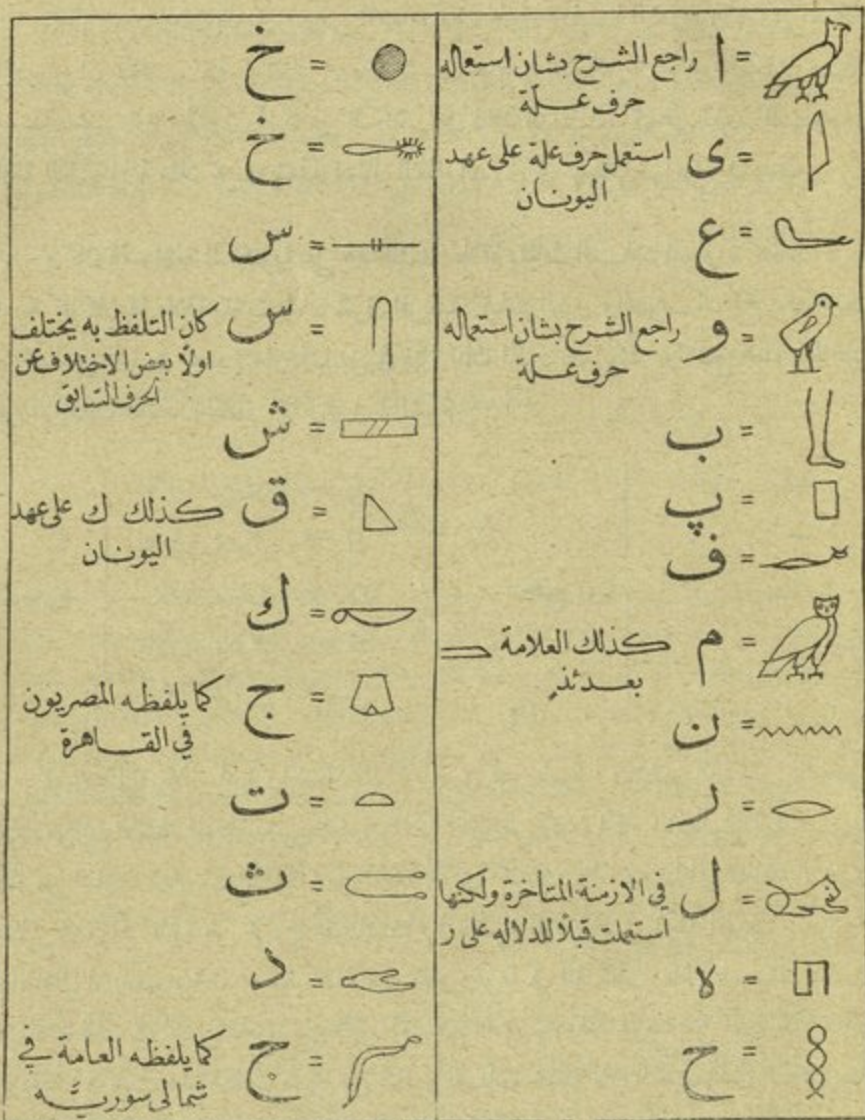 = ا راجع الشرح بشان استعماله
حرف علّة
= ى استعمل حرف علة على عهد
اليونان
= ع
= و راجع الشرح بشان استعماله
حرف علّة
= ب
= پ
= ف
= م كذلك العلامة
بعدئذٍ
= ن
= ر
= ل في الازمنة المتأخرة ولكنها
استعملت قبلًا للدلاله على ر
= ﻻ
= ح
= خ
= خ
= س
= س كان التلفظ به يختلف
اولًا بعض الاختلاف عن
الحرف السابق
= ش
= ق كذلك ك على عهد
اليونان
= ك
= ج كما يلفظه المصريون
في القاهرة
= ت
= ث
= د
= ج كما يلفظه العامة في
شمالى سوريّه